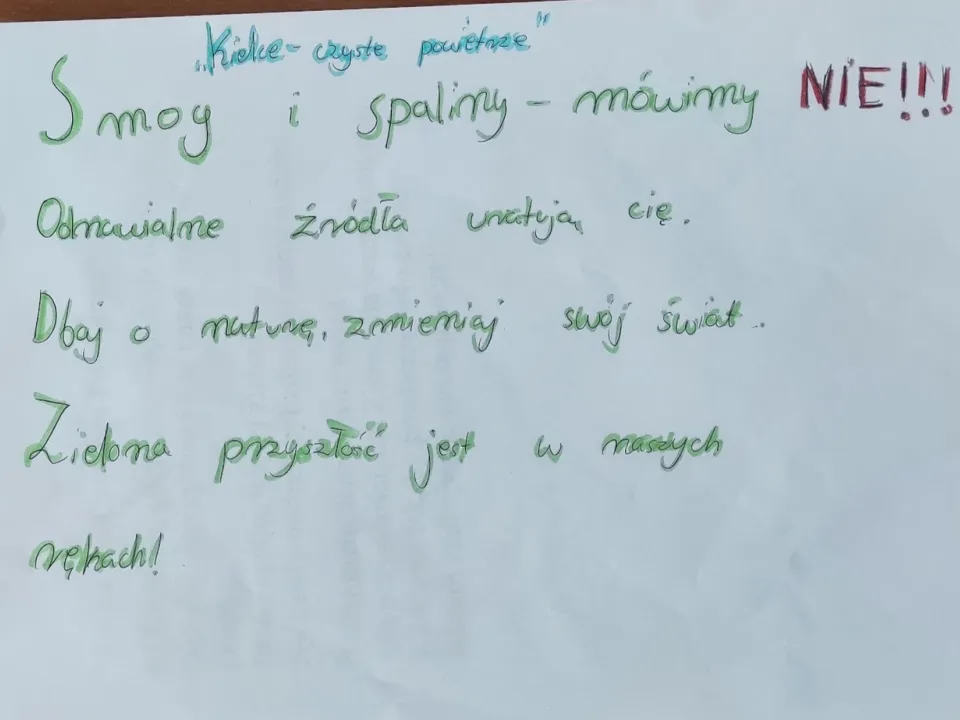 „Kielce - czyste powietrze"
Smog i spaliny - mówimy NIE!!!
Odnawialne źródła uratują cię.
Dbaj o naturę, zmieniaj swój świat.
Zielona przyszłość jest w naszych
rękach!